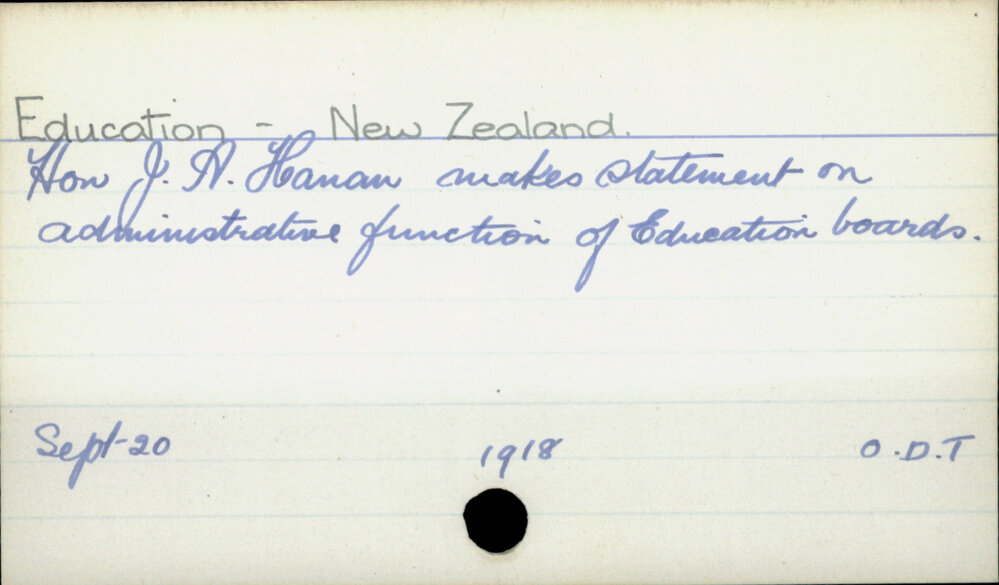 Education - New Zealand.
Hon J. A. Hanan makes statement on
administrative function of Education boards.
Sept-20 1918 O.D.T